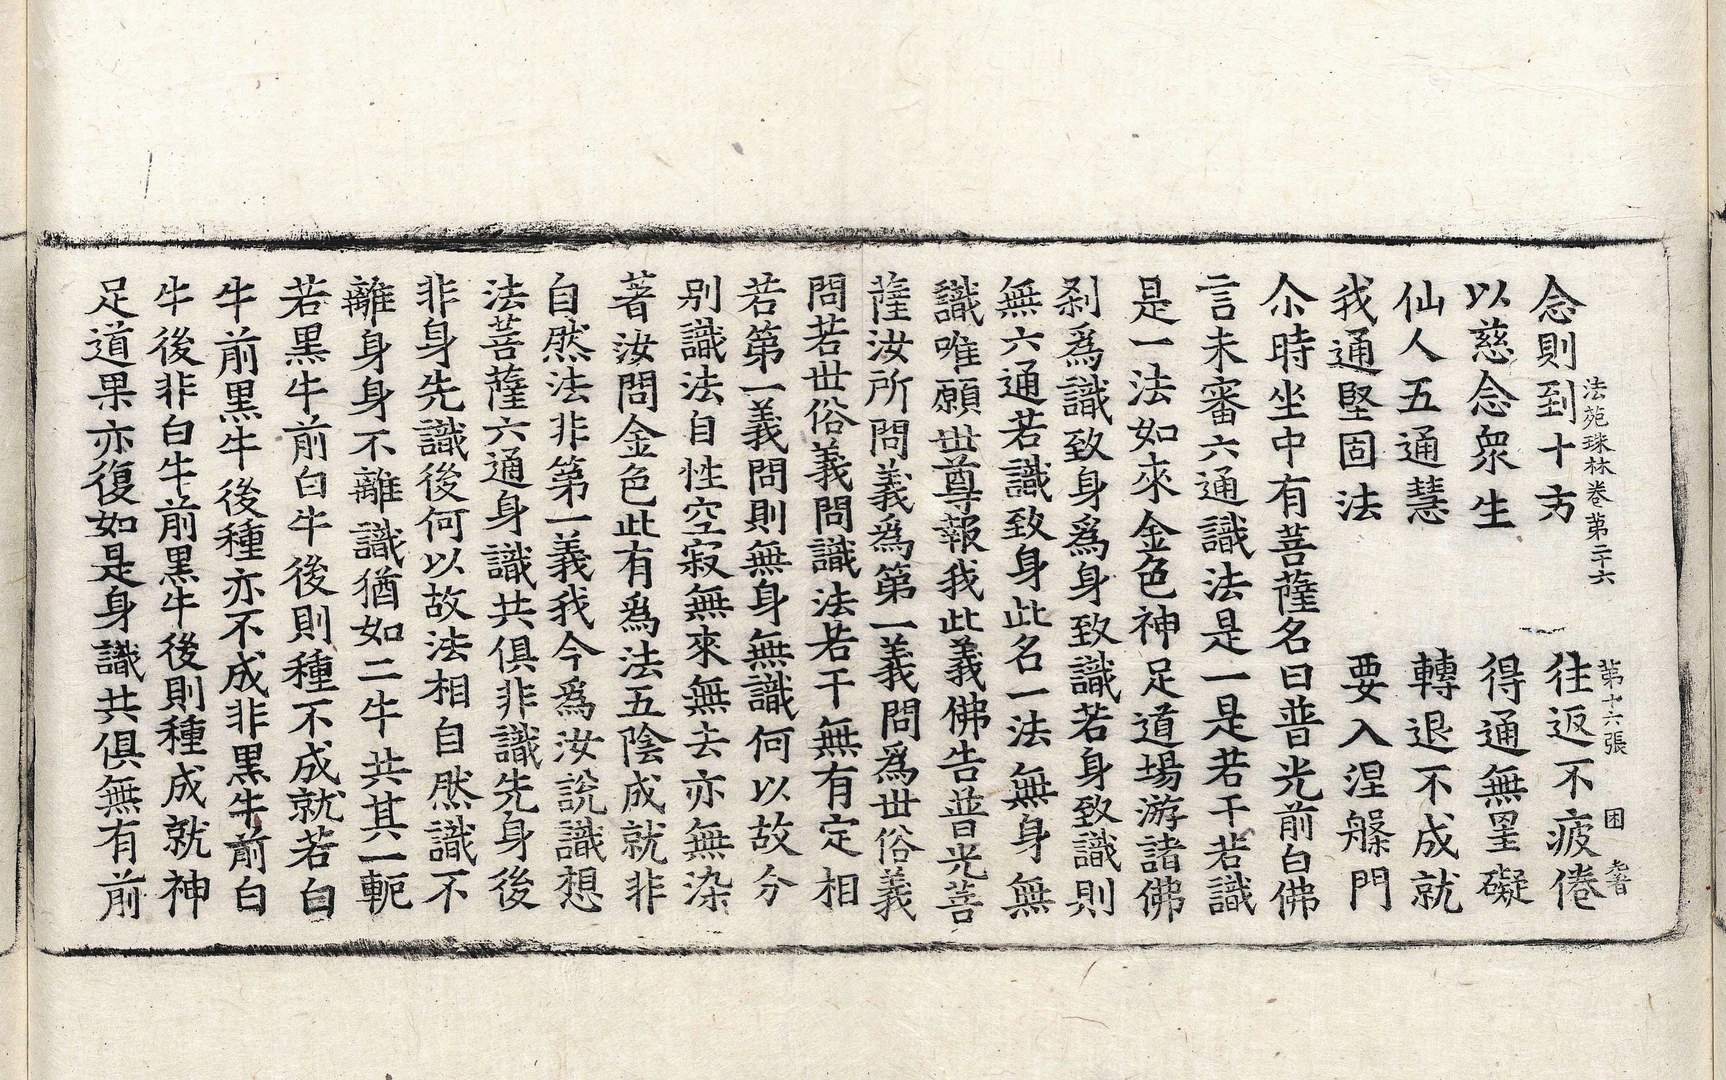 法苑珠林卷第三十六　第十六張　困　老著
念則到十方　往返不疲倦
以慈念衆生　得通無罣礙
仙人五通慧　轉退不成就
我通堅固法　要入涅槃門
尒時坐中有菩薩名曰普光前白佛
言未審六通識法是一是若干若識
是一法如來金色神足道場游諸佛
刹爲識致身爲身致識若身致識則
無六通若識致身此名一法無身無
識唯願世尊報我此義佛告普光菩
薩汝所問義爲第一義問爲世俗義
問若世俗義問識法若干無有定相
若第一義問則無身無識何以故分
別識法自性空寂無來無去亦無染
著汝問金色此有爲法五陰成就非
自然法非第一義我今爲汝說識想
法菩薩六通身識共俱非識先身後
非身先識後何以故法相自然識不
離身身不離識猶如二牛共其一軛
若黒牛前白牛後則種不成就若白
牛前黒牛後種亦不成非黒牛前白
牛後非白牛前黒牛後則種成就神
足道果亦復如是身識共俱無有前